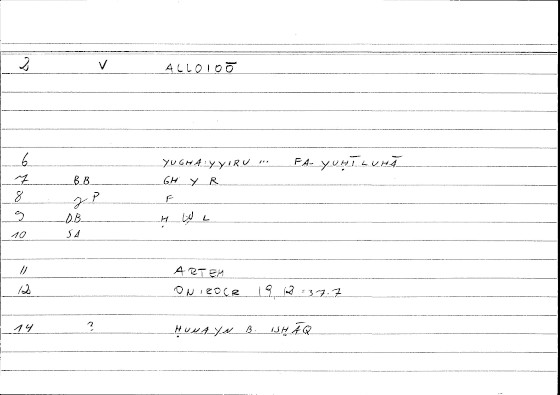 2 V ALLOIOŌ
6 YUGHAYYIRU ... FA- YUḤĪLUHĀ
7 BB GH Y R
8 P F
9 DB Ḥ W L
10 SA
11 ARTEM
12 ONIROCR 19,12 = 37.7
14 ? ḤUNAYN B. ISḤĀQ